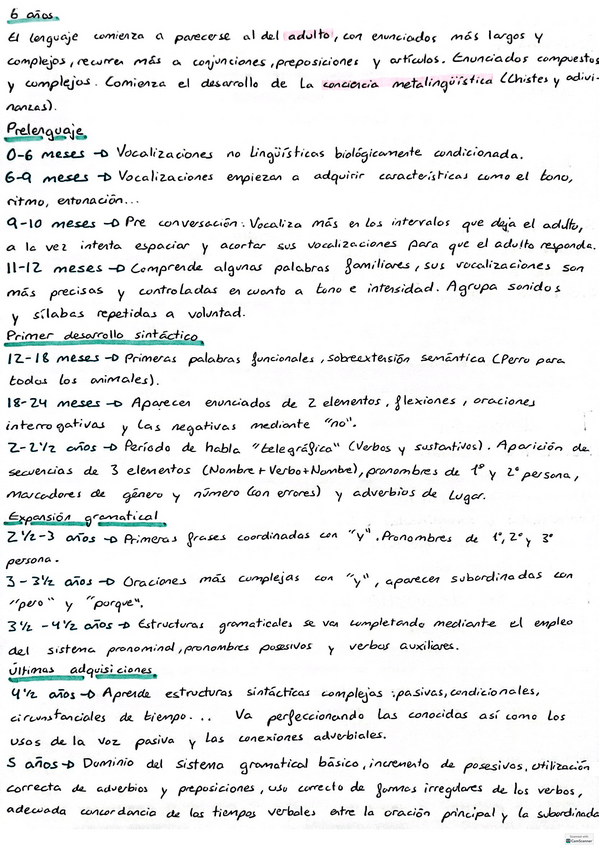 6 años.
El lenguaje comienza a parecerse al del adulto, con enunciados más largos y
complejos, recurren más a conjunciones, preposiciones y artículos. Enunciados compuestos
y complejos. Comienza el desarrollo de la conciencia metalingüística (Chistes y adivi-
nanzas).
Prelenguaje
0-6 meses → Vocalizaciones no lingüísticas biológicamente condicionada.
6-9 meses → Vocalizaciones empiezan a adquirir características como el tono,
ritmo, entonación...
9-10 meses → Pre conversación. Vocaliza más en los intervalos que deja el adulto,
a la vez intenta espaciar y acortar sus vocalizaciones para que el adulto responda.
11-12 meses → Comprende algunas palabras familiares, sus vocalizaciones son
más precisas y controladas en cuanto a tono e intensidad. Agrupa sonidos
y sílabas repetidas a voluntad.
Primer desarrollo sintáctico
12-18 meses → Primeras palabras funcionales, sobreextensión semántica (Perro para
todos los animales).
18-24 meses → Aparecen enunciados de 2 elementos, flexiones, oraciones
interrogativas y las negativas mediante "no".
2-2½ años → Período de habla "telegráfica" (Verbos y sustantivos). Aparición de
secuencias de 3 elementos (Nombre + Verbo + Nombre), pronombres de 1º y 2º persona,
marcadores de género y número (con errores) y adverbios de lugar.
Expansión gramatical
2½-3 años → Primeras frases coordinadas con "y". Pronombres de 1º, 2º y 3º
persona.
3-3½ años → Oraciones más complejas con "y", aparecen subordinadas con
"pero" y "porque".
3½-4½ años → Estructuras gramaticales se van completando mediante el empleo
del sistema pronominal, pronombres posesivos y verbos auxiliares.
Últimas adquisiciones
4½ años → Aprende estructuras sintácticas complejas: pasivas, condicionales,
circunstanciales de tiempo... Va perfeccionando las conocidas así como los
usos de la voz pasiva y las conexiones adverbiales.
5 años → Dominio del sistema gramatical básico, incremento de posesivos, utilización
correcta de adverbios y preposiciones, uso correcto de formas irregulares de los verbos,
adecuada concordancia de los tiempos verbales entre la oración principal y la subordinada
CamScanner